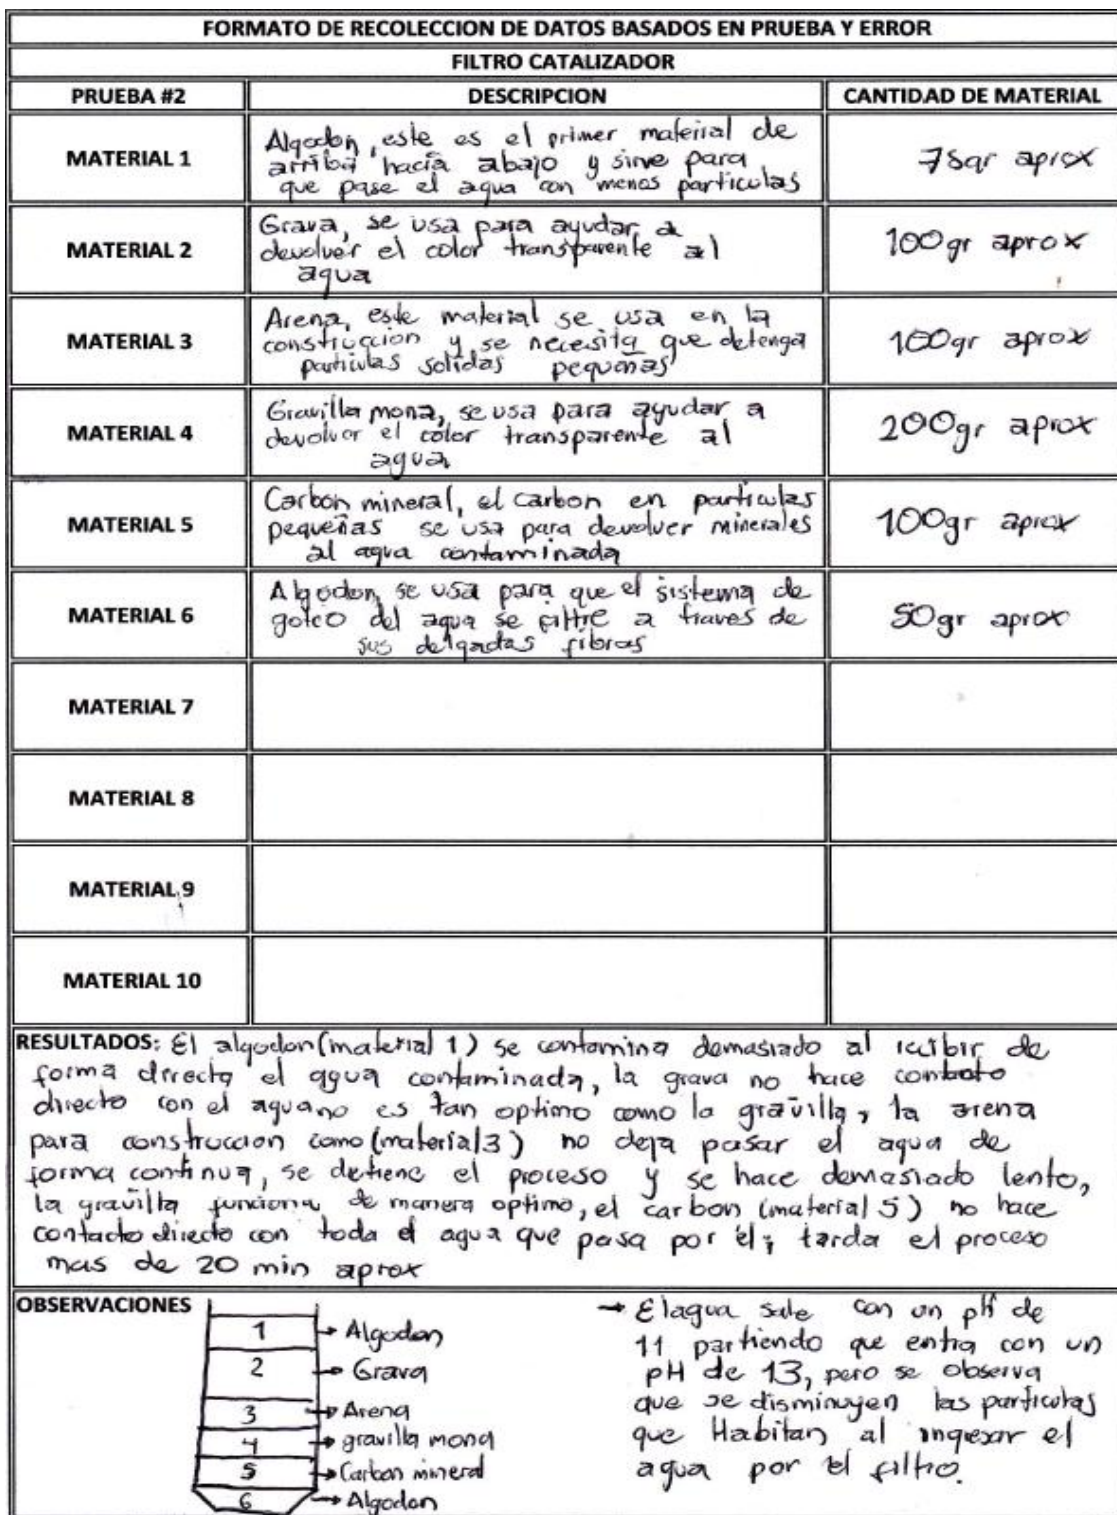 FORMATO DE RECOLECCION DE DATOS BASADOS EN PRUEBA Y ERROR
FILTRO CATALIZADOR
PRUEBA #2 DESCRIPCION CANTIDAD DE MATERIAL
MATERIAL 1
Algodon, este es el primer material de
arriba hacia abajo y sirve para
que pase el agua con menos particulas
75gr aprox
MATERIAL 2
Grava, se usa para ayudar a
devolver el color transparente al
agua
100gr aprox
MATERIAL 3
Arena, este material se usa en la
construccion y se necesita que detenga
particulas solidas pequeñas
100gr aprox
MATERIAL 4
Gravilla mona, se usa para ayudar a
devolver el color transparente al
agua
200gr aprox
MATERIAL 5
Carbon mineral, el carbon en particulas
pequeñas se usa para devolver minerales
al agua contaminada
100gr aprox
MATERIAL 6
Algodon, se usa para que el sistema de
goteo del agua se filtre a traves de
sus delgadas fibras
50gr aprox
MATERIAL 7
MATERIAL 8
MATERIAL 9
MATERIAL 10
RESULTADOS: El algodon (material 1) se contamina demasiado al recibir de
forma directa el agua contaminada, la grava no hace contacto
directo con el agua no es tan optimo como la gravilla, la arena
para construccion como (material 3) no deja pasar el agua de
forma continua, se detiene el proceso y se hace demasiado lento,
la gravilla funciona de manera optimo, el carbon (material 5) no hace
contacto directo con toda el agua que pasa por él; tarda el proceso
mas de 20 min aprox
OBSERVACIONES
1 → Algodon
2 → Grava
3 → Arena
4 → gravilla mona
5 → Carbon mineral
6 → Algodon
→ El agua sale con un pH de
11 partiendo que entra con un
pH de 13, pero se observa
que se disminuyen las particulas
que Habitan al ingresar el
agua por el filtro.